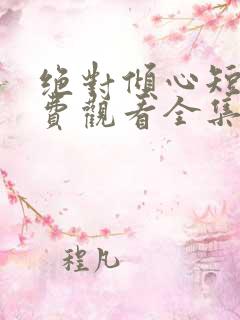 绝對傾心短
費觀看全集
程凡